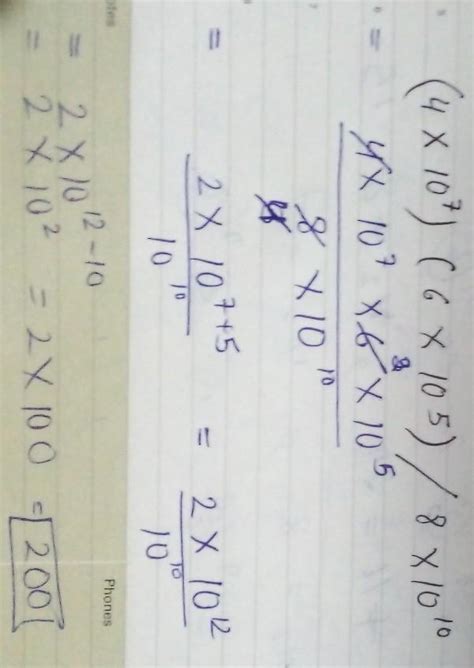 (4 × 10^7) (6 × 10^5) / 8 × 10^10
= 4 × 10^7 × 6 3 × 10^5
8 × 10^10
= 2 × 10^7+5 = 2 × 10^12
10^10 10^10
= 2 × 10^12-10
= 2 × 10^2 = 2 × 100 = 200
Phones